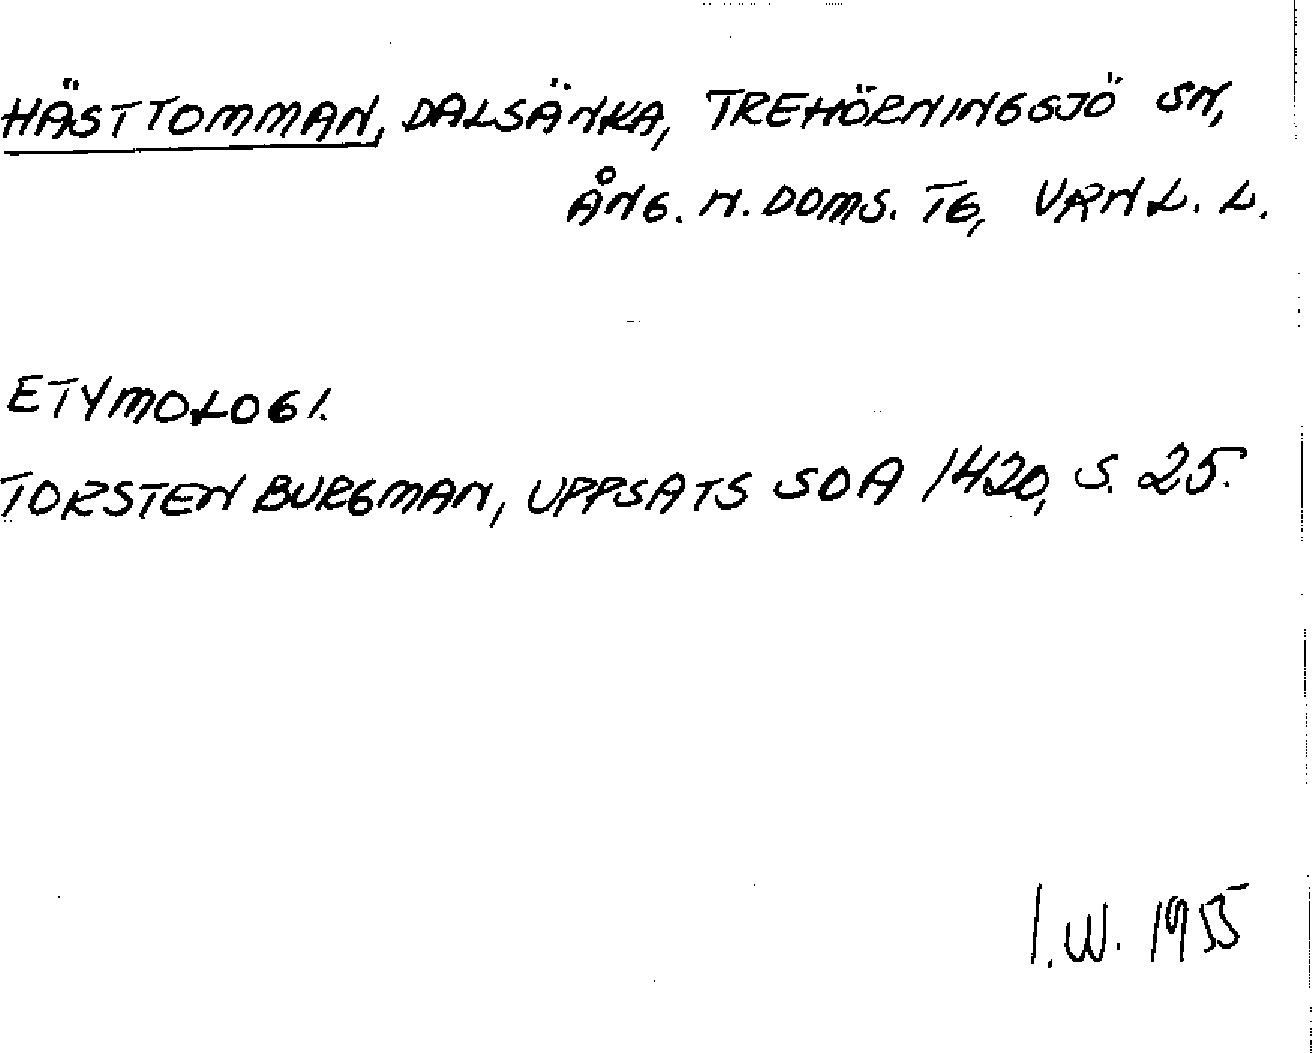 HÄSTTOMMAN, DALSÄNKA, TREHÖRNINGSJÖ SN,
ÅNG. N. DOMS. TG, VRNL. L.
ETYMOLOGI.
TORSTEN BURGMAN, UPPSATS SOA 1420, S. 25.
I.W. 1955